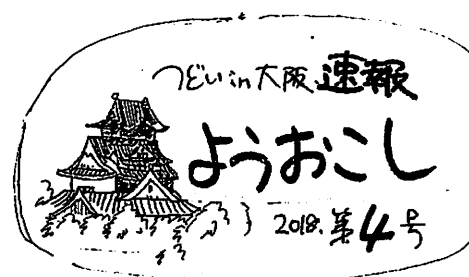 つどい in 大阪 速報
ようおこし
2018. 第4号